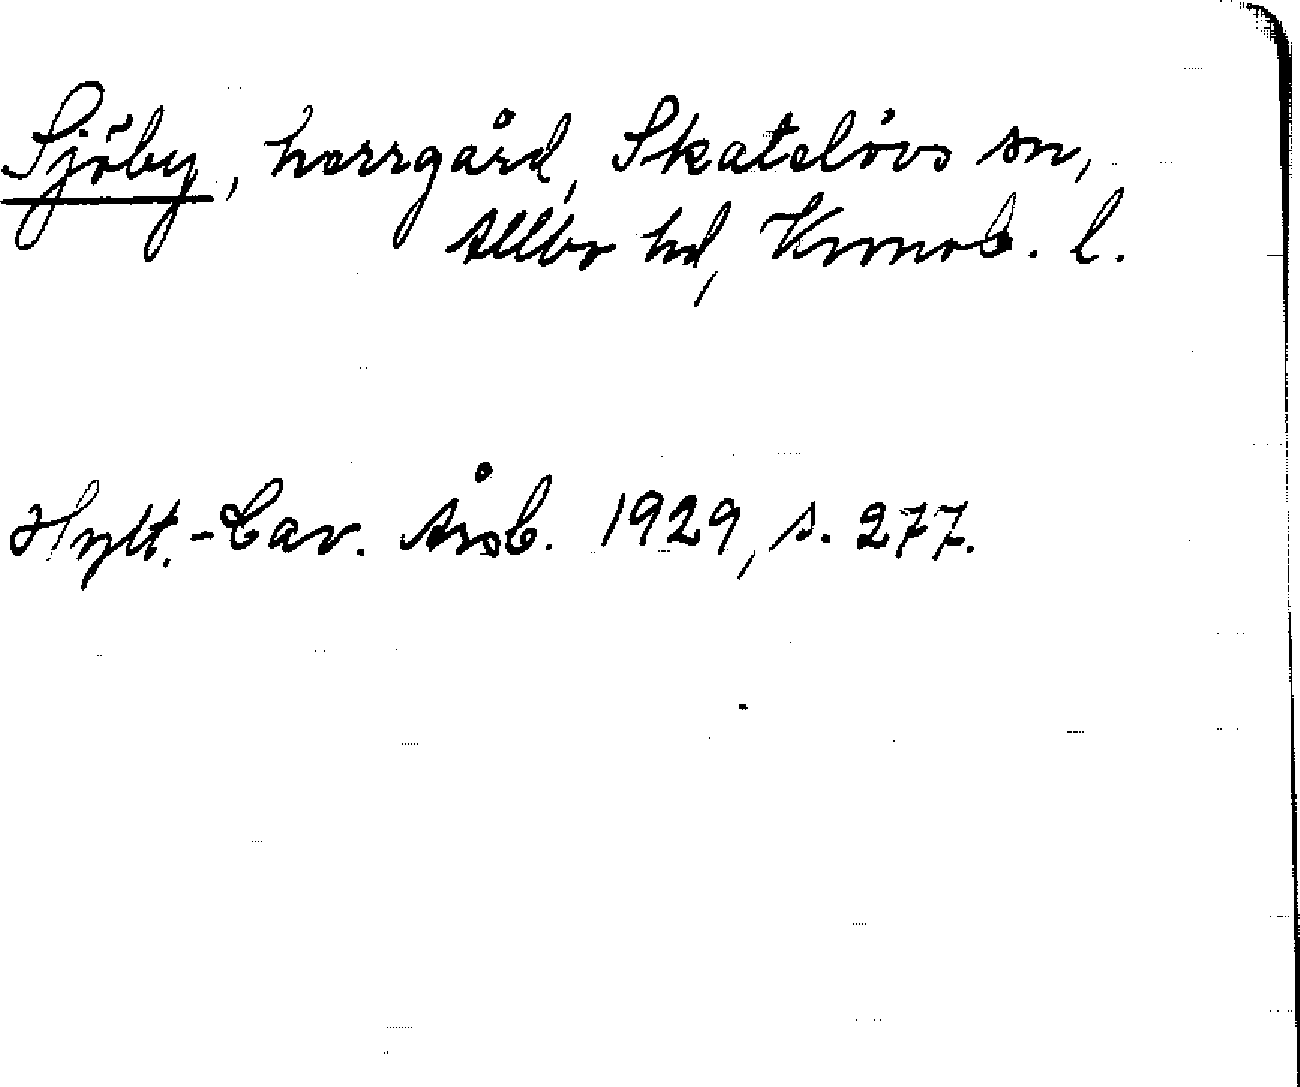 Sjöby, herrgård, Skatelövs sn,
Allbo hd, Kronob. l.
Hylt.-Cav. Årsb. 1929, s. 277.